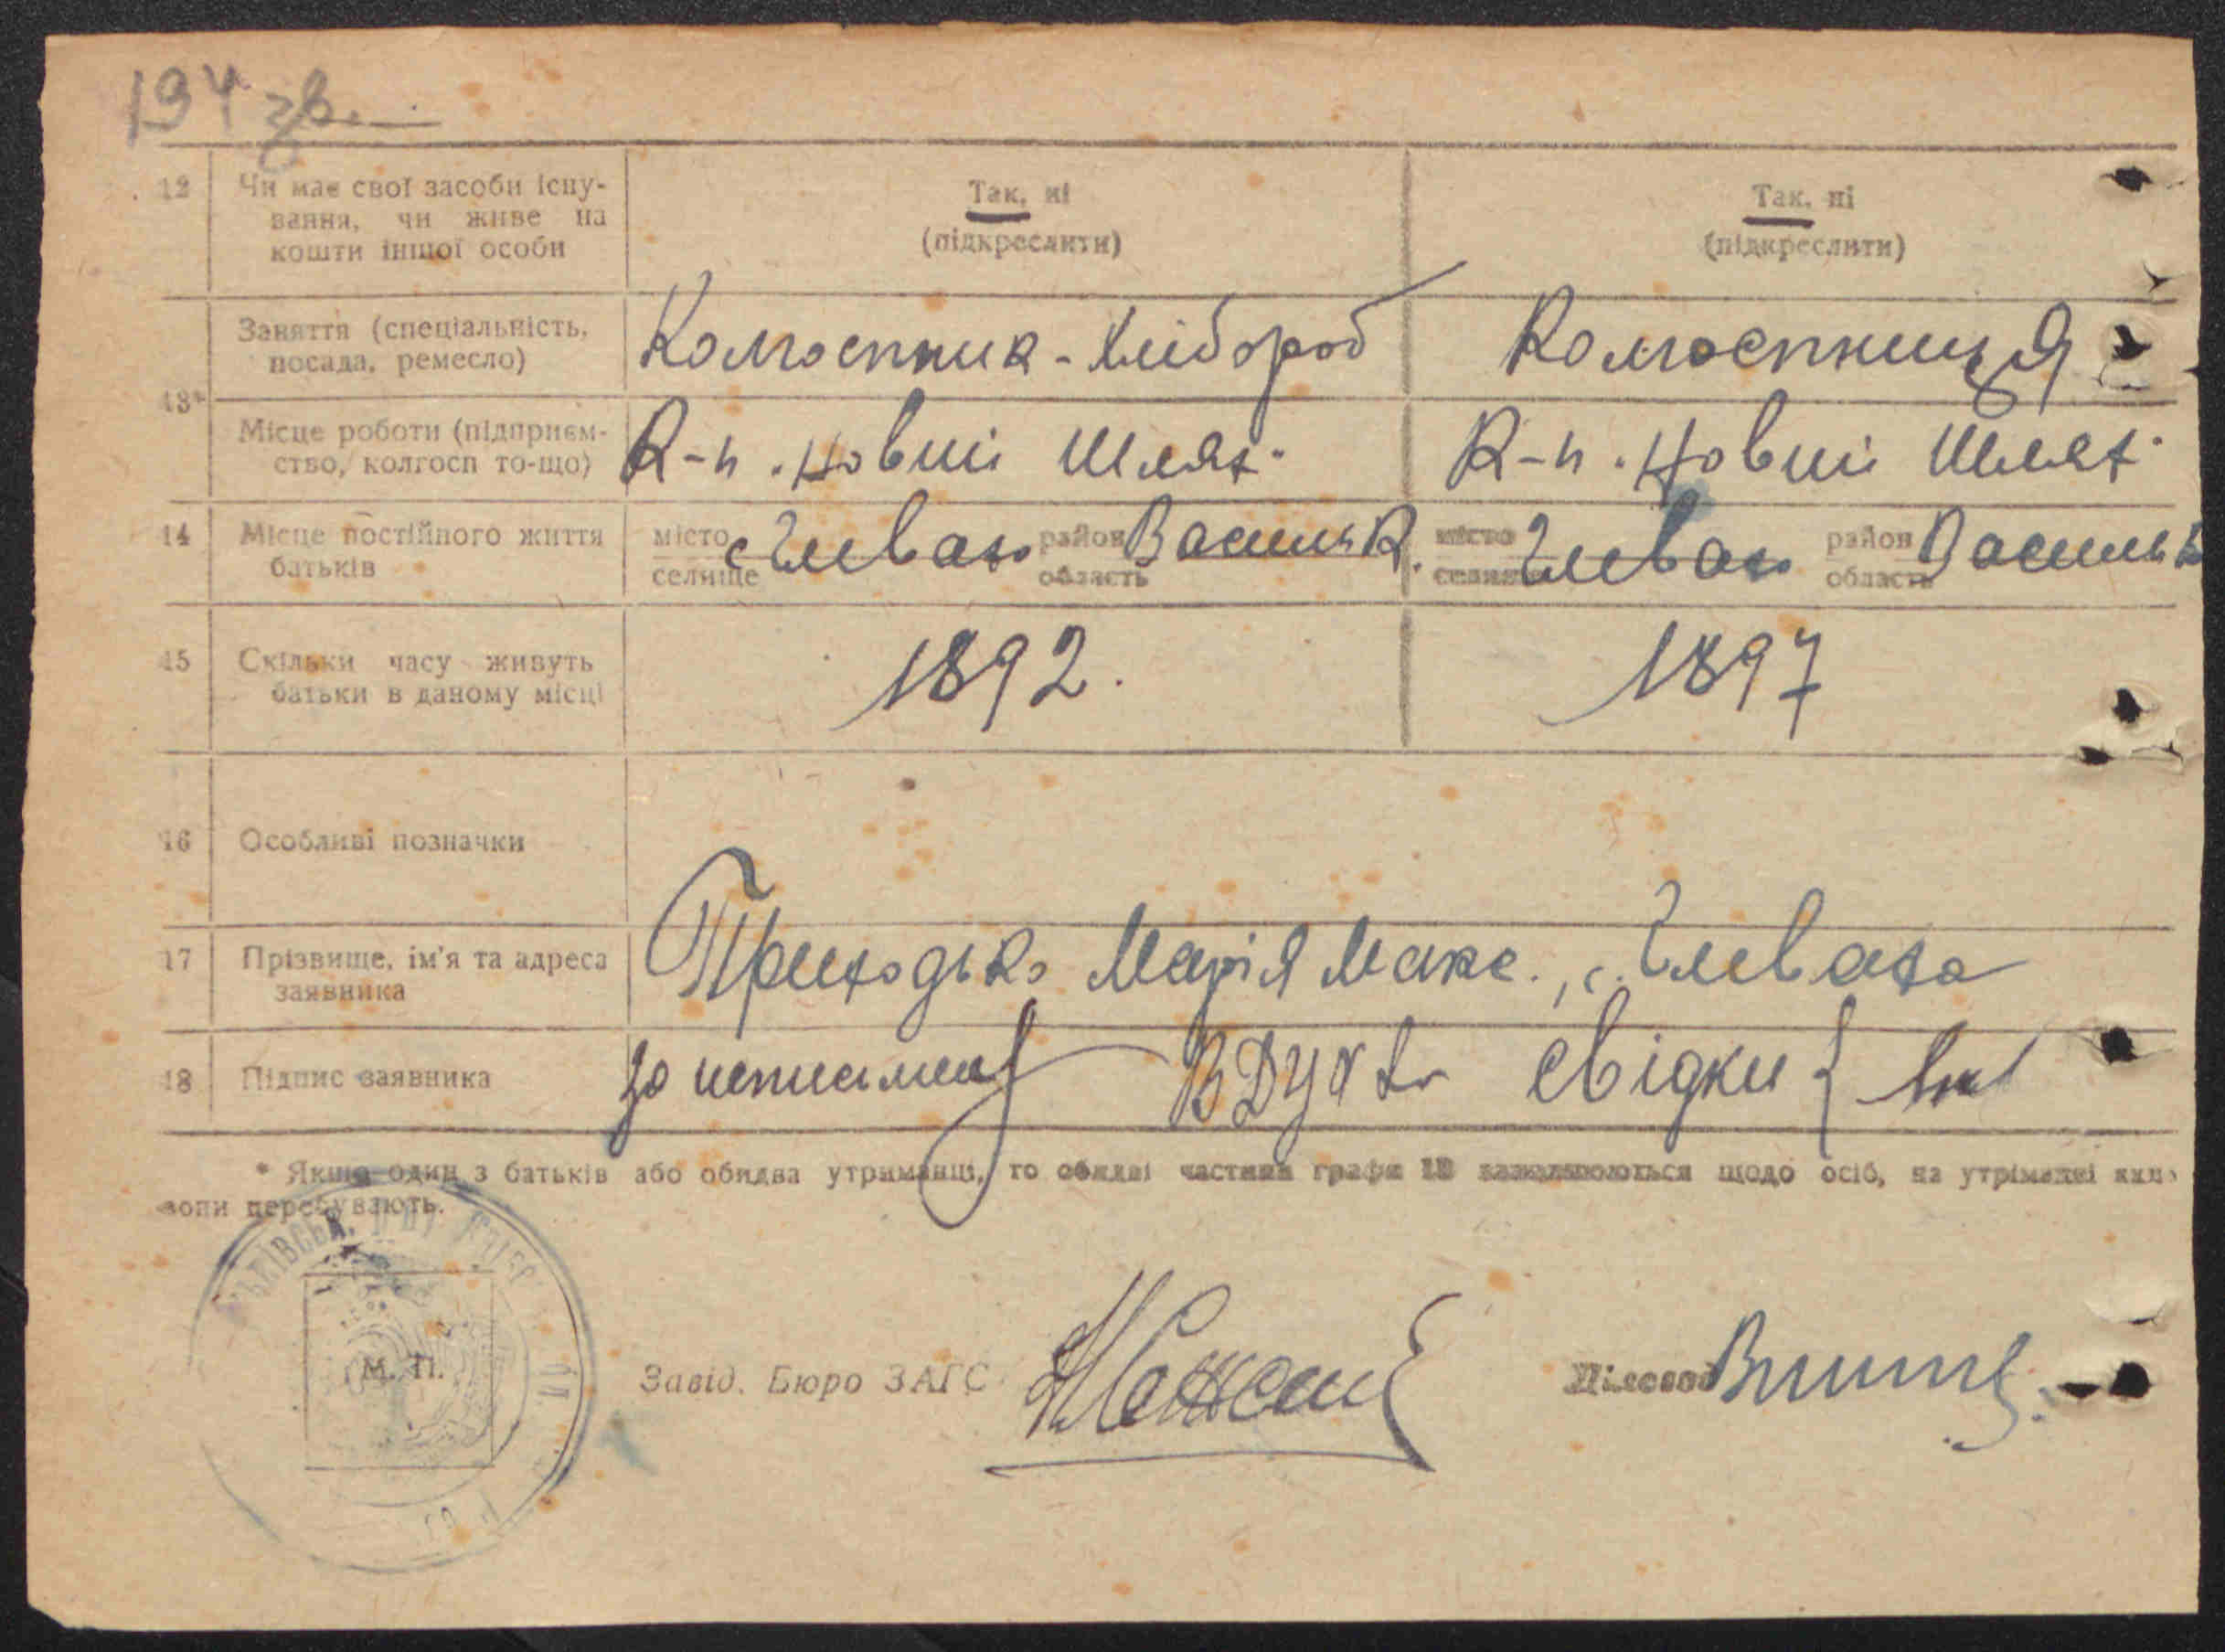 194 зв.
12 Чи має свої засоби існу-
вання, чи живе на
кошти іншої особи
Так, ні
(підкреслити)
Так, ні
(підкреслити)
13*
Заняття (спеціальність,
посада, ремесло)
Колгоспник - хлібороб
Колгоспниця
Місце роботи (підприєм-
ство, колгосп то-що)
К-п. Новий Шлях
К-п. Новий Шлях
14 Місце постійного життя
батьків
місто
селище
с. Глеваха
район
область
Васильк.
місто
селище
Глеваха
район
область
Васильк
15 Скільки часу живуть
батьки в даному місці
1892.
1897
16 Особливі позначки
17 Прізвище, ім'я та адреса
заявника
Приходько Марія Макс., с. Глеваха
18 Підпис заявника
за неписьмен
свідки {
* Якщо один з батьків або обидва утриманці, то обидві частини графи 13 заповнюються щодо осіб, на утріманні яких
вони перебувають.
М. П.
Завід. Бюро ЗАГС
Діловод